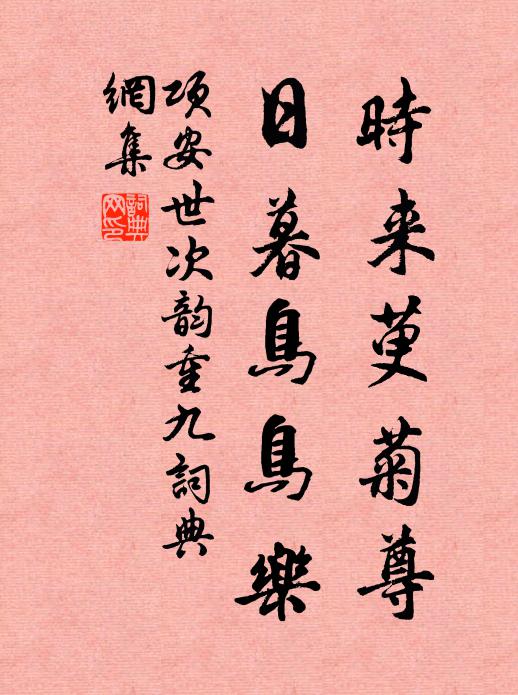 時来萸菊尊
日暮鳥鳥樂
項安世次韵重九詞典
網集
詞典
网印